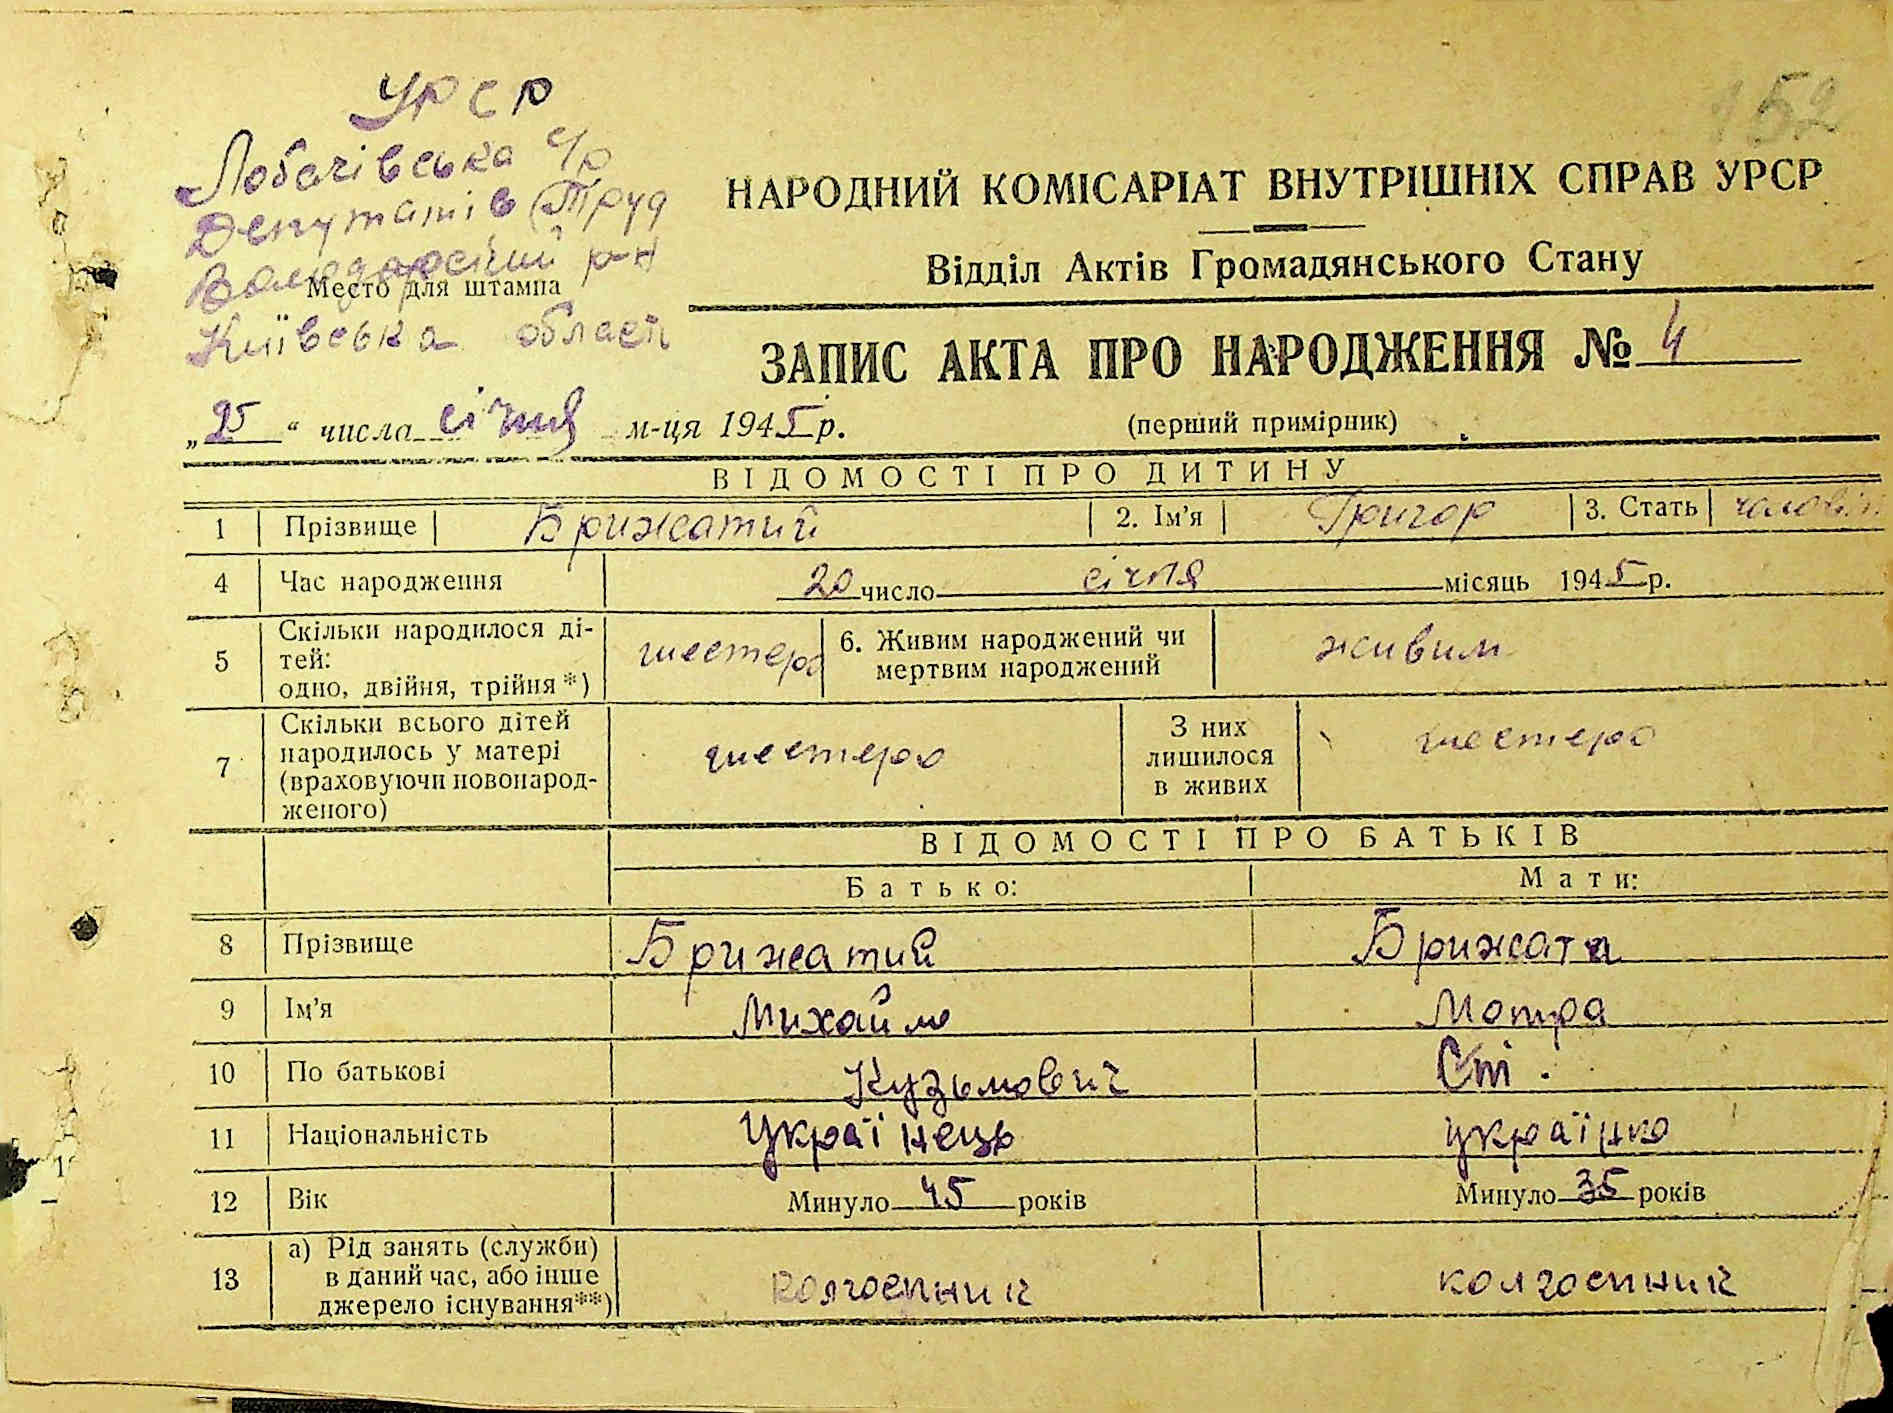 152
УРСР
Лобачівська с/р
Депутатів Труд
Володарський р-н
Место для штампа
Київська област
НАРОДНИЙ КОМІСАРІАТ ВНУТРІШНІХ СПРАВ УРСР
Відділ Актів Громадянського Стану
ЗАПИС АКТА ПРО НАРОДЖЕННЯ № 4
„25“ числа січня м-ця 1945 р.
(перший примірник)
ВІДОМОСТІ ПРО ДИТИНУ
1 Прізвище Брижатий 2. Ім'я Григор 3. Стать
4 Час народження 20 число січня місяць 1945 р.
5 Скільки народилося ді-
тей:
одно, двійня, трійня*) шестеро 6. Живим народжений чи
мертвим народжений живим
7 Скільки всього дітей
народилось у матері
(враховуючи новонарод-
женого) шестеро З них
лишилося
в живих шестеро
ВІДОМОСТІ ПРО БАТЬКІВ
Батько: Мати:
8 Прізвище Брижатий Брижата
9 Ім'я Михайло Мотра
10 По батькові Кузьмович
11 Національність Українець українка
12 Вік Минуло 45 років Минуло 35 років
13 а) Рід занять (служби)
в даний час, або інше
джерело існування**) колгоспник колгоспник